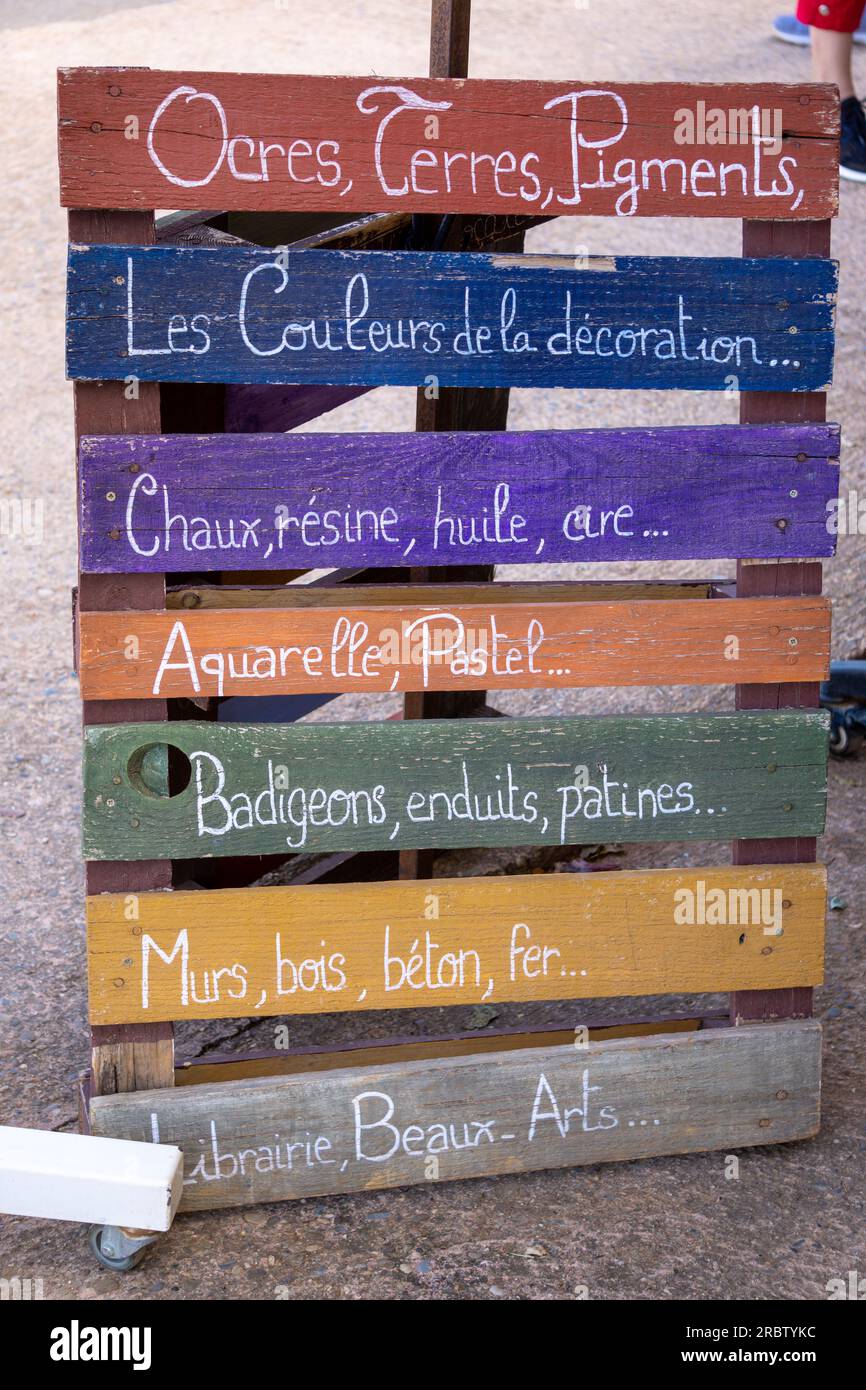 Ocres, Terres, Pigments,
Les Couleurs de la décoration...
Chaux, résine, huile, cire...
Aquarelle, Pastel...
Badigeons, enduits, patines...
Murs, bois, béton, fer...
Librairie, Beaux-Arts...
alamy
Image ID: 2RBTYKC
www.alamy.com